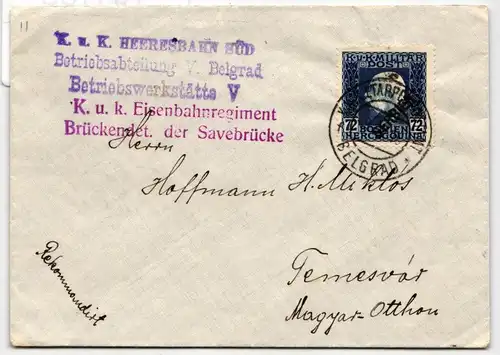 11
K. u. K. HEERESBAHN SÜD
Betriebsabteilung V. Belgrad
Betriebswerkstätte V
K. u. k. Eisenbahnregiment
Brückendet. der Savebrücke
K.u.K. MILITÄR
POST
72
BOSNIEN
HERCEGOVINA
BELGRAD
Herrn
Hoffmann H. Miklos
Rekommandirt
Temesvár
Magyar-Otthon